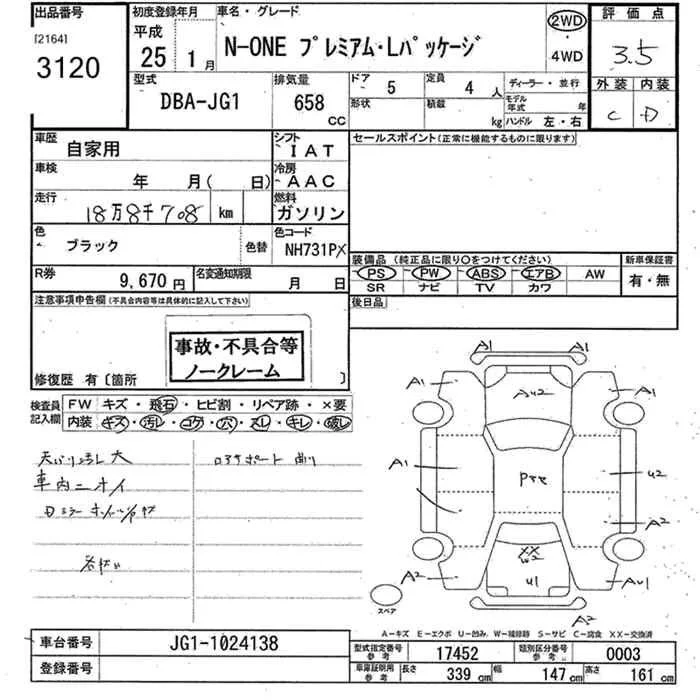 出品番号
[2164]
3120
初度登録年月
平成
25 1月
車名・グレード
N-ONE プレミアム・Lパッケージ
2WD
4WD
評価点
3.5
外装 内装
C D
型式
DBA-JG1
排気量
658 CC
ドア 5
定員 4 人
ディーラー・並行
形状
積載 kg
モデル年式 年
ハンドル 左・右
車歴
自家用
シフト
IAT
セールスポイント(正常に機能するものに限ります)
車検
年 月( 日)
冷房
AAC
走行
18万8千708 km
燃料
ガソリン
色
ブラック
色替
色コード
NH731PX
装備品 (純正品に限り○をつけてください)
新車保証書
PS PW ABS エアB AW
有・無
SR ナビ TV カワ
R券
9,670 円
名変通知期限
月 日
後日品
注意事項申告欄(不具合内容等は具体的に記入して下さい)
事故・不具合等
ノークレーム
修復歴 有〔箇所 〕
検査員記入欄
FW キズ・飛石・ヒビ割・リペア跡・×要
内装 キズ・汚レ・コゲ・穴・スレ・キレ・破レ
天バリ汚レ大
車内ニオイ
A1 A1
A1 A1
A1 U2
A2
XX
W2
U1
A2 AU1
A2
スペア
A-キズ E-エクボ U-凹み W-補修跡 S-サビ C-腐食 XX-交換済
車台番号
JG1-1024138
型式指定番号
参考
17452
類別区分番号
参考
0003
登録番号
車庫証明用
参考
長さ 339 cm
幅 147 cm
高さ 161 cm